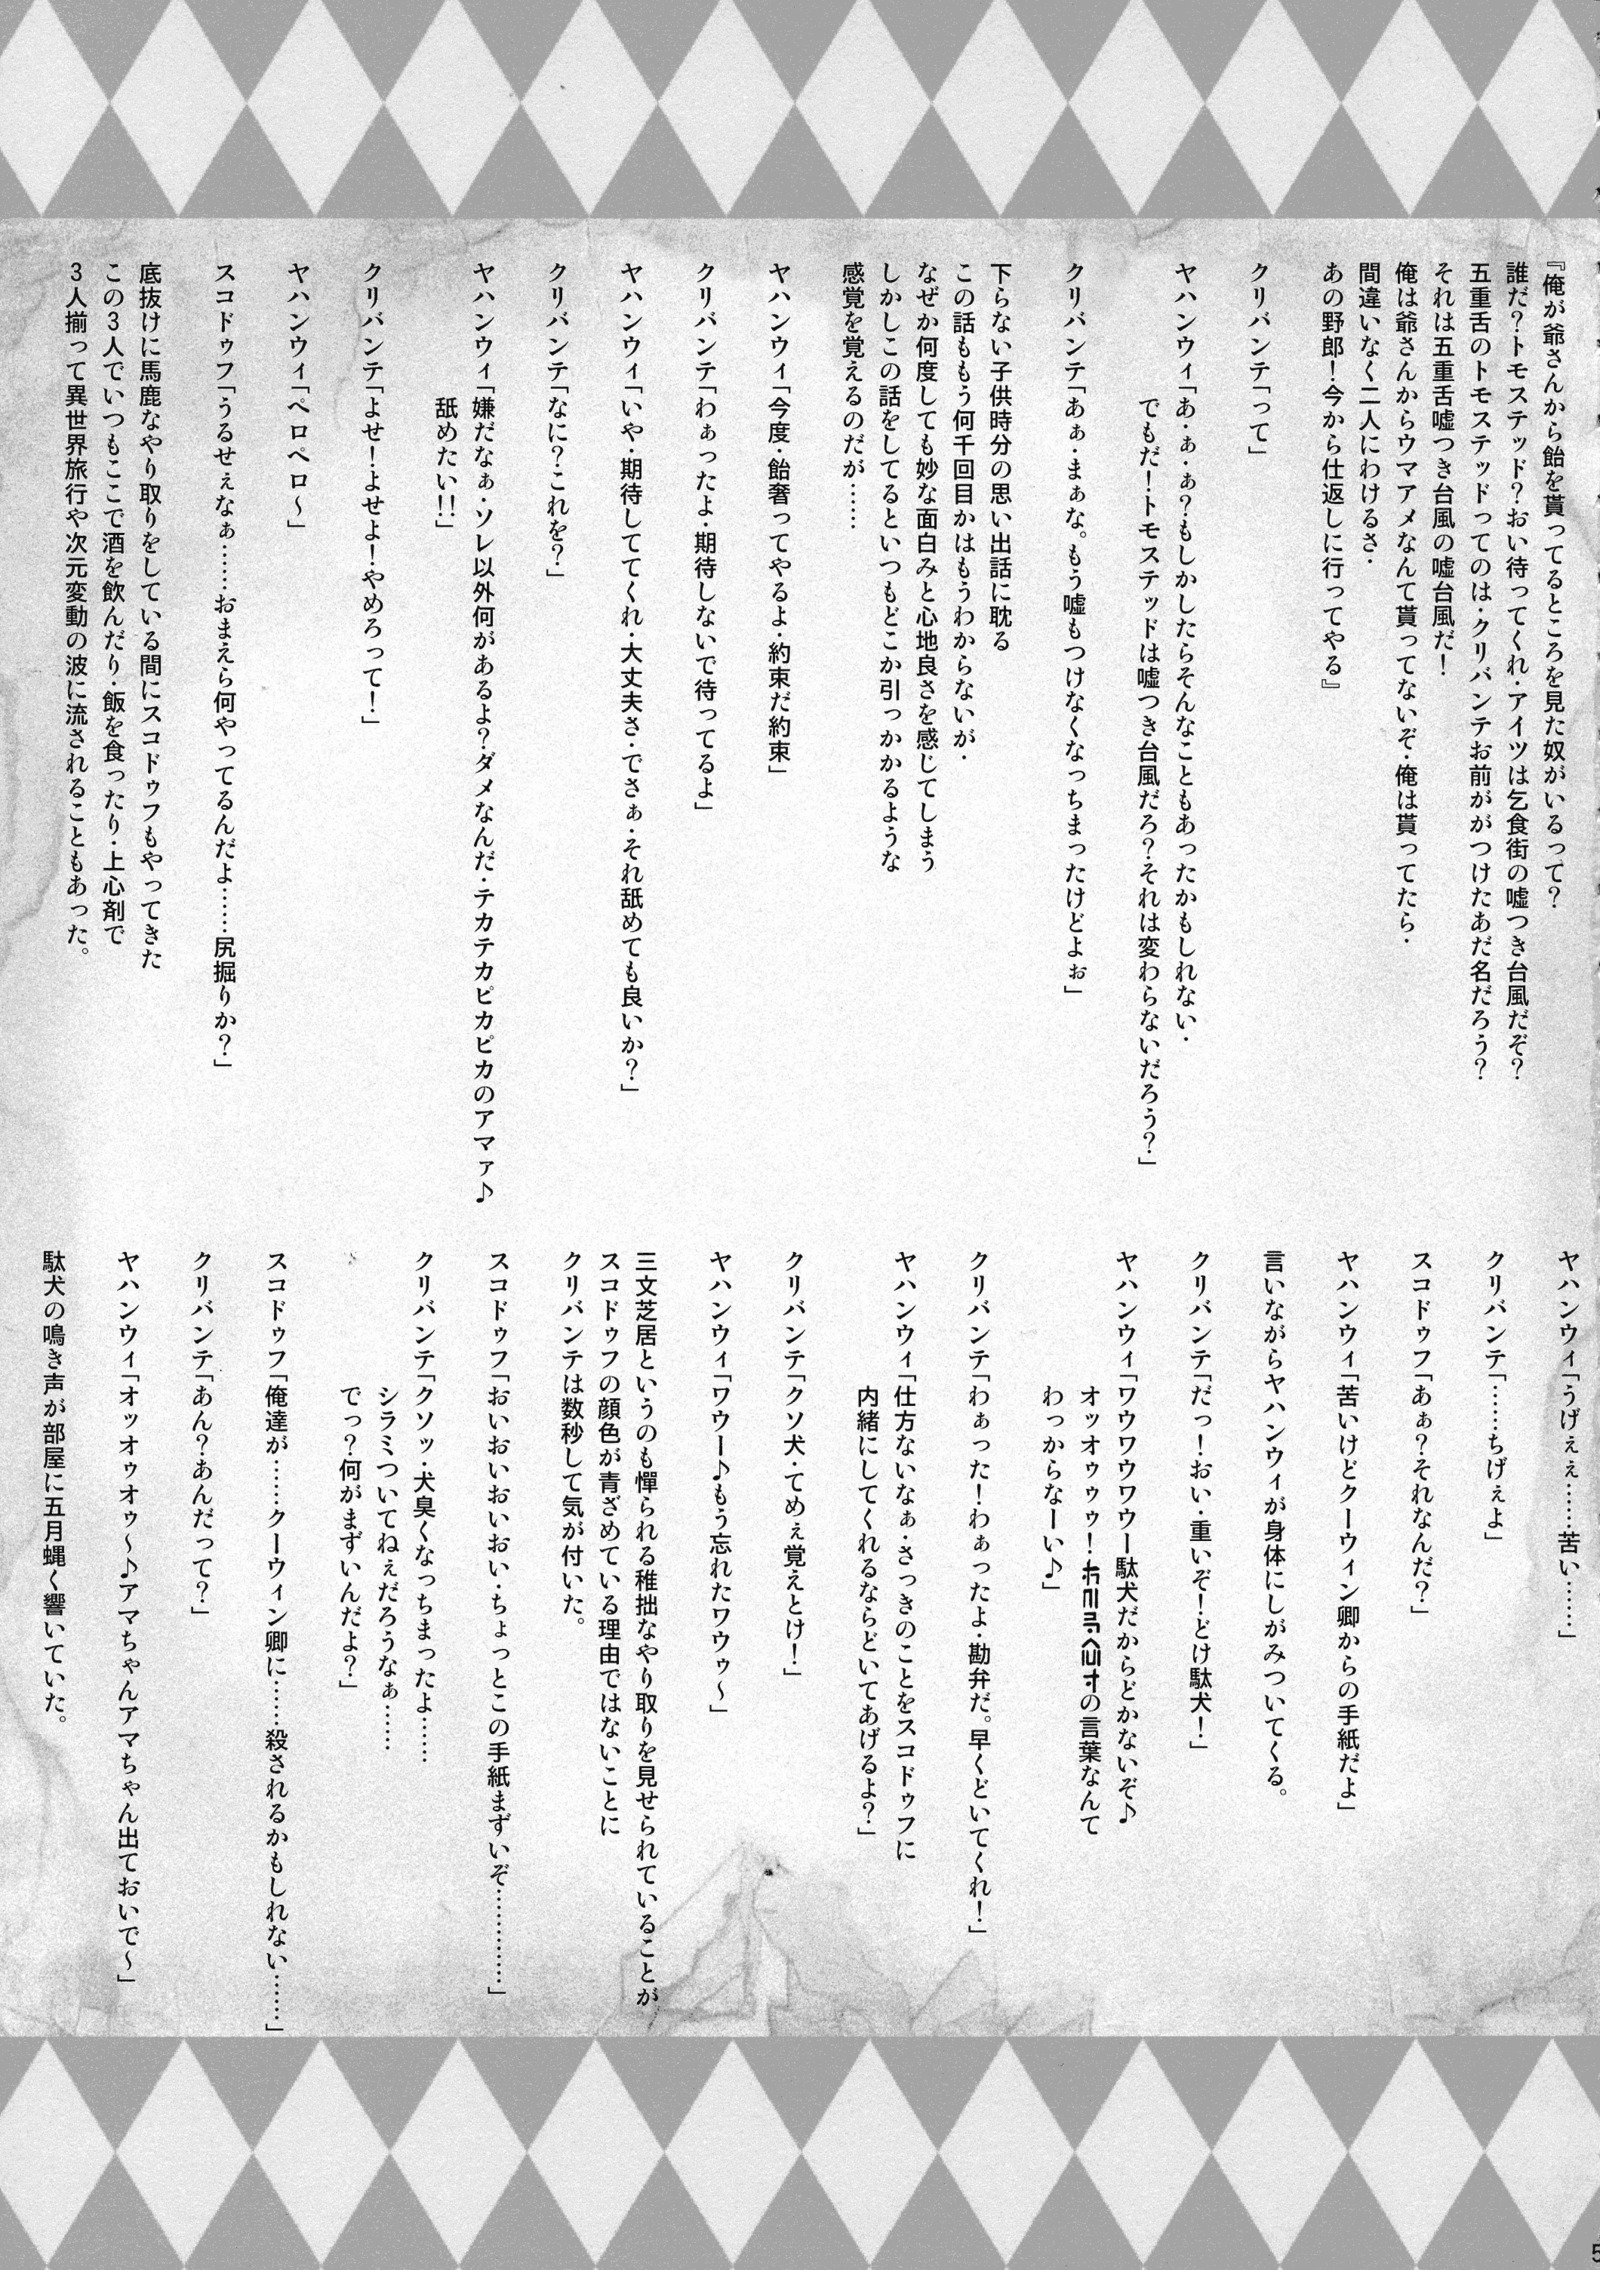 『俺が爺さんから飴を貰ってるところを見た奴がいるって？
誰だ？トモステッド？おい待ってくれ・アイツは乞食街の嘘つき台風だぞ？
五重舌のトモステッドってのは・クリバンテお前ががつけたあだ名だろう？
それは五重舌嘘つき台風の嘘台風だ！
俺は爺さんからウマアメなんて貰ってないぞ・俺は貰ってたら・
間違いなく二人にわけるさ・
あの野郎！今から仕返しに行ってやる』
クリバンテ「って」
ヤハンウィ「あ・ぁ・ぁ？もしかしたらそんなこともあったかもしれない・
でもだ！トモステッドは嘘つき台風だろ？それは変わらないだろう？」
クリバンテ「あぁ・まぁな。もう嘘もつけなくなっちまったけどよぉ」
下らない子供時分の思い出話に耽る
この話ももう何千回目かはもうわからないが・
なぜか何度しても妙な面白みと心地良さを感じてしまう
しかしこの話をしてるといつもどこか引っかかるような
感覚を覚えるのだが……
ヤハンウィ「今度・飴奢ってやるよ・約束だ約束」
クリバンテ「わぁったよ・期待しないで待ってるよ」
ヤハンウィ「いや・期待しててくれ・大丈夫さ・でさぁ・それ舐めても良いか？」
クリバンテ「なに？これを？」
ヤハンウィ「嫌だなぁ・ソレ以外何があるよ？ダメなんだ・テカテカピカピカのアマァ♪
舐めたい！！」
クリバンテ「よせ！よせよ！やめろって！」
ヤハンウィ「ペロペロ～」
スコドゥフ「うるせぇなぁ……おまえら何やってるんだよ……尻掘りか？」
底抜けに馬鹿なやり取りをしている間にスコドゥフもやってきた
この3人でいつもここで酒を飲んだり・飯を食ったり・上心剤で
3人揃って異世界旅行や次元変動の波に流されることもあった。
ヤハンウィ「うげぇぇ……苦い……」
クリバンテ「……ちげぇよ」
スコドゥフ「あぁ？それなんだ？」
ヤハンウィ「苦いけどクーウィン卿からの手紙だよ」
言いながらヤハンウィが身体にしがみついてくる。
クリバンテ「だっ！おい・重いぞ！どけ駄犬！」
ヤハンウィ「ワウワウワウー駄犬だからどかないぞ♪
オッオゥゥゥ！の言葉なんて
わっからなーい♪」
クリバンテ「わぁった！わぁったよ・勘弁だ。早くどいてくれ！」
ヤハンウィ「仕方ないなぁ・さっきのことをスコドゥフに
内緒にしてくれるならどいてあげるよ？」
クリバンテ「クソ犬・てめぇ覚えとけ！」
ヤハンウィ「ワウー♪もう忘れたワウゥ～」
三文芝居というのも憚られる稚拙なやり取りを見せられていることが
スコドゥフの顔色が青ざめている理由ではないことに
クリバンテは数秒して気が付いた。
スコドゥフ「おいおいおいおい・ちょっとこの手紙まずいぞ…………」
クリバンテ「クソッ・犬臭くなっちまったよ……
シラミついてねぇだろうなぁ……
でっ？何がまずいんだよ？」
スコドゥフ「俺達が……クーウィン卿に……殺されるかもしれない……」
クリバンテ「あん？あんだって？」
ヤハンウィ「オッオゥオゥ～♪アマちゃんアマちゃん出ておいで～」
駄犬の鳴き声が部屋に五月蝿く響いていた。
5